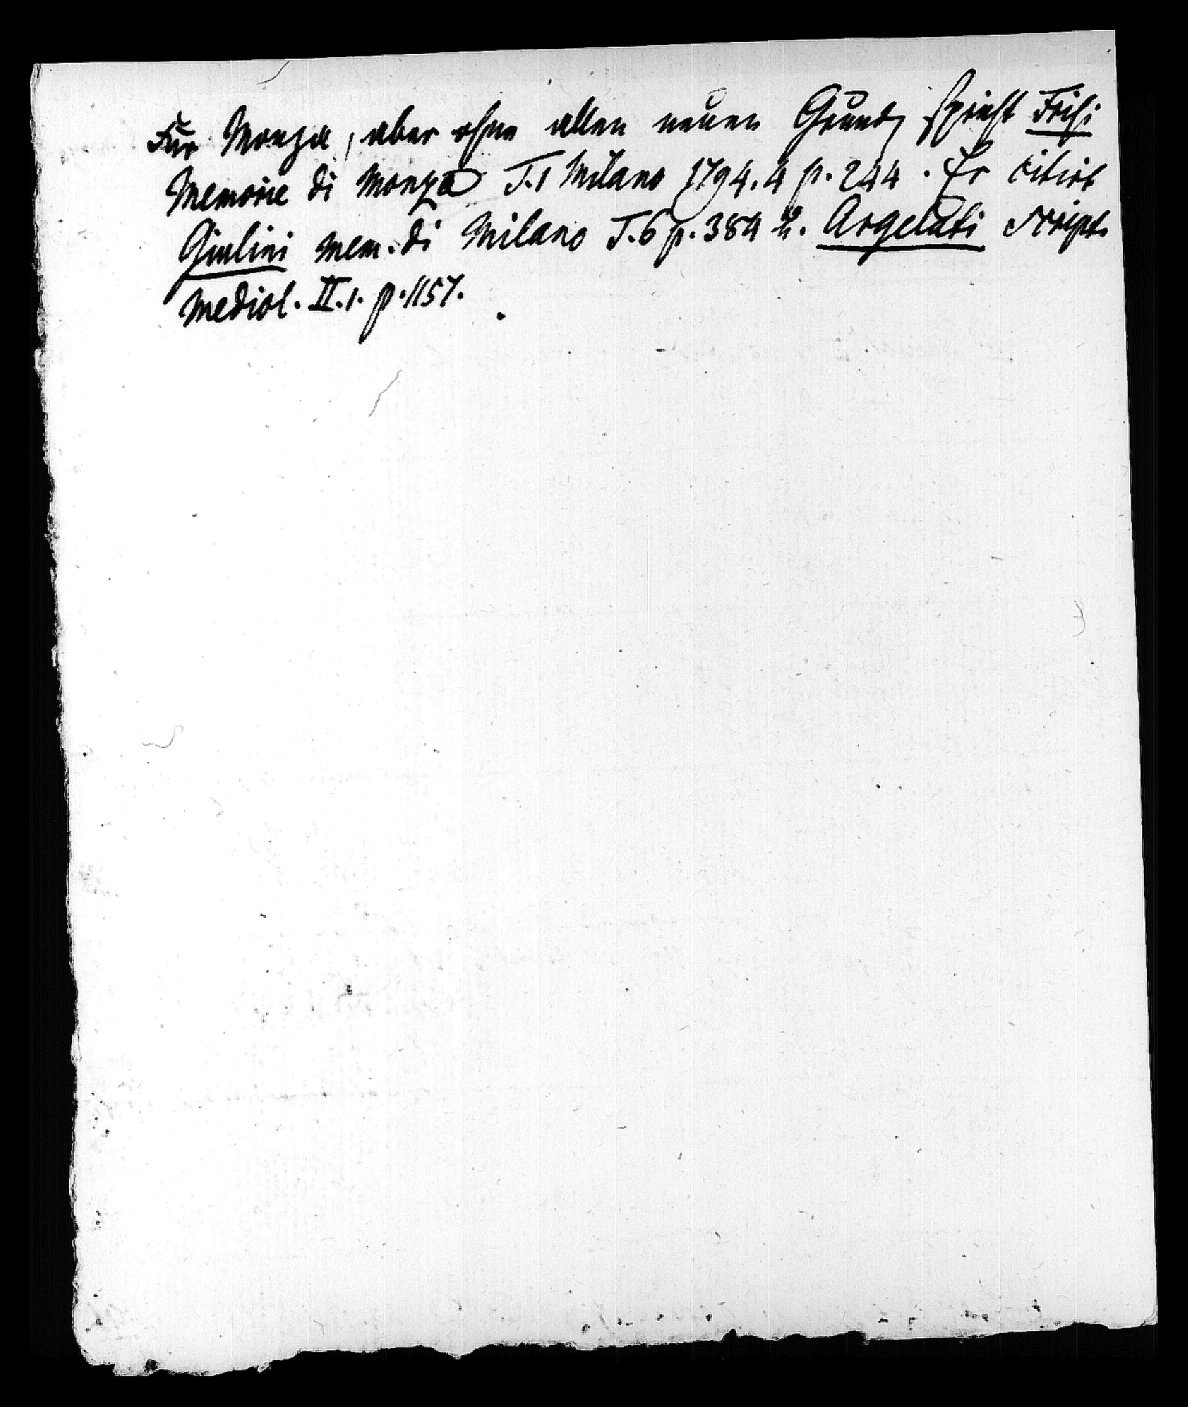 Für Monza, aber ohne allen neuen Grund, spricht Frisi
Memorie di Monza T.1 Milano 1794. 4 p. 244. Er citirt
Giulini mem. di Milano T. 6 p. 384 u. Argelati script.
Mediol. II. 1. p. 1157.